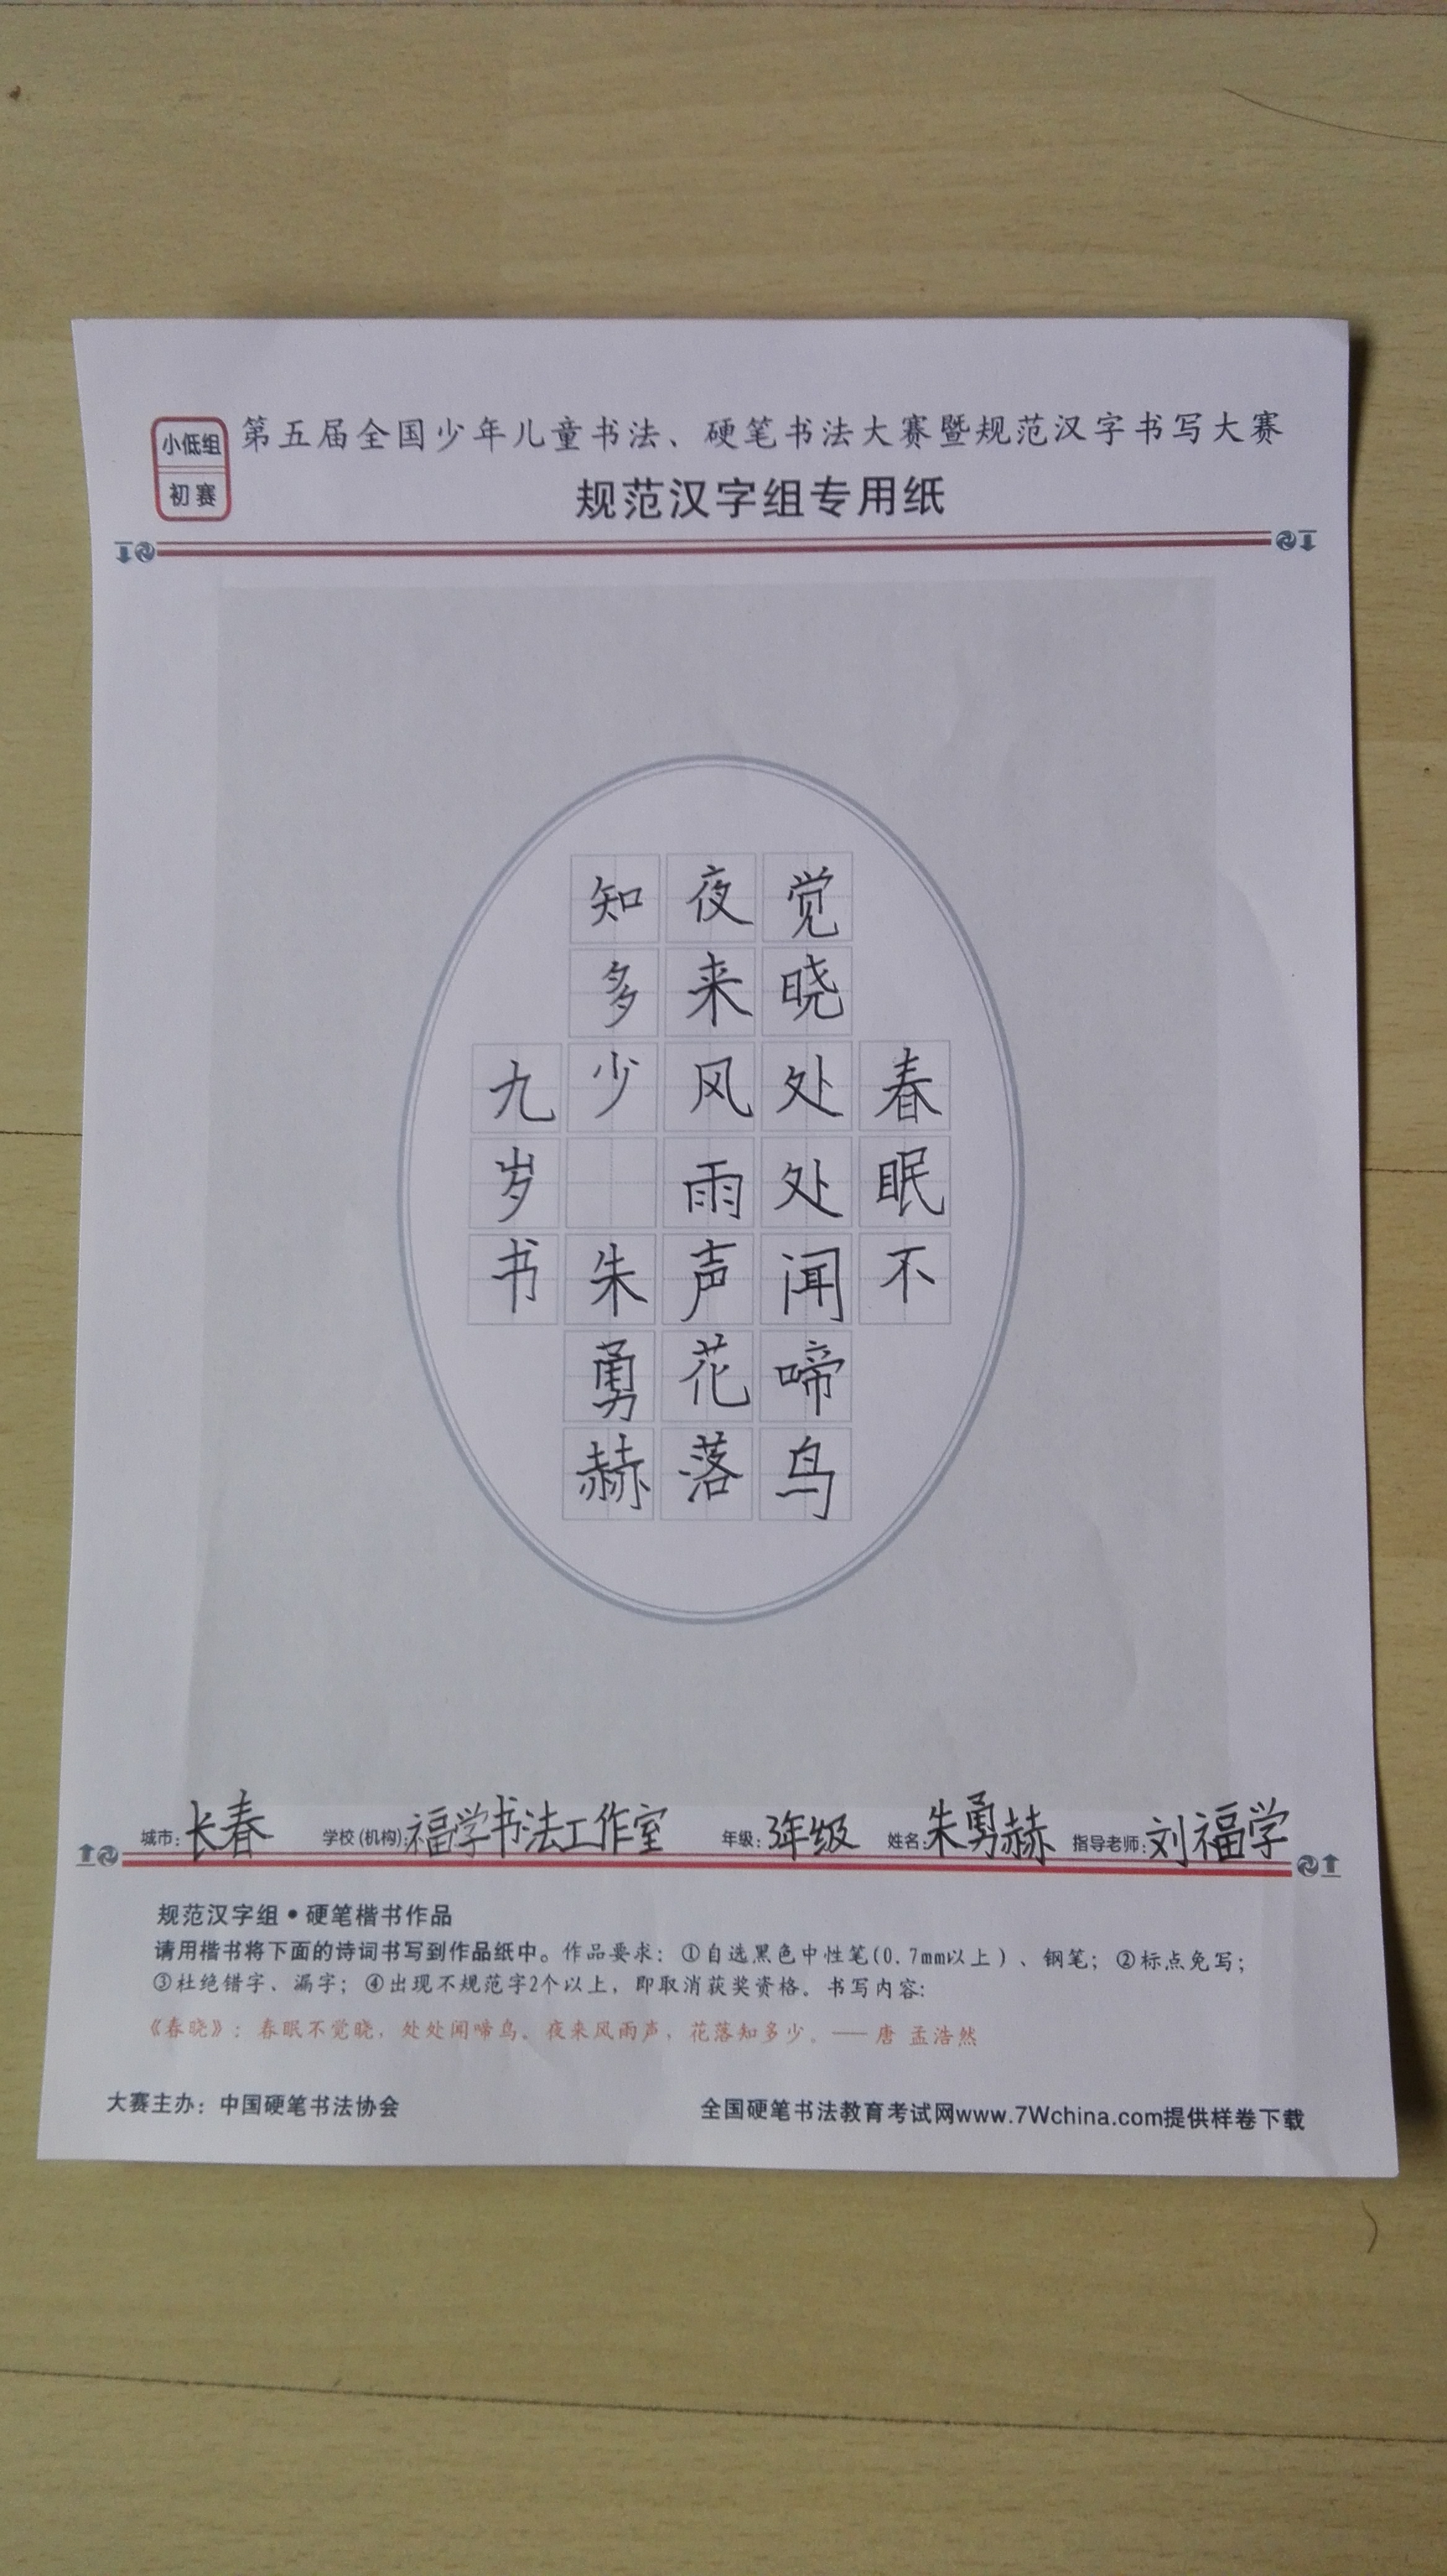 小低组
初赛
第五届全国少年儿童书法、硬笔书法大赛暨规范汉字书写大赛
规范汉字组专用纸
春眠不
觉晓处处闻啼鸟
夜来风雨声花落
知多少 朱勇赫
九岁书
城市:长春 学校(机构):福学书法工作室 年级:3年级 姓名:朱勇赫 指导老师:刘福学
规范汉字组●硬笔楷书作品
请用楷书将下面的诗词书写到作品纸中。作品要求:①自选黑色中性笔(0.7mm以上)、钢笔;②标点免写;
③杜绝错字、漏字;④出现不规范字2个以上,即取消获奖资格。书写内容:
《春晓》:春眠不觉晓,处处闻啼鸟。夜来风雨声,花落知多少。——唐 孟浩然
大赛主办:中国硬笔书法协会 全国硬笔书法教育考试网www.7Wchina.com提供样卷下载